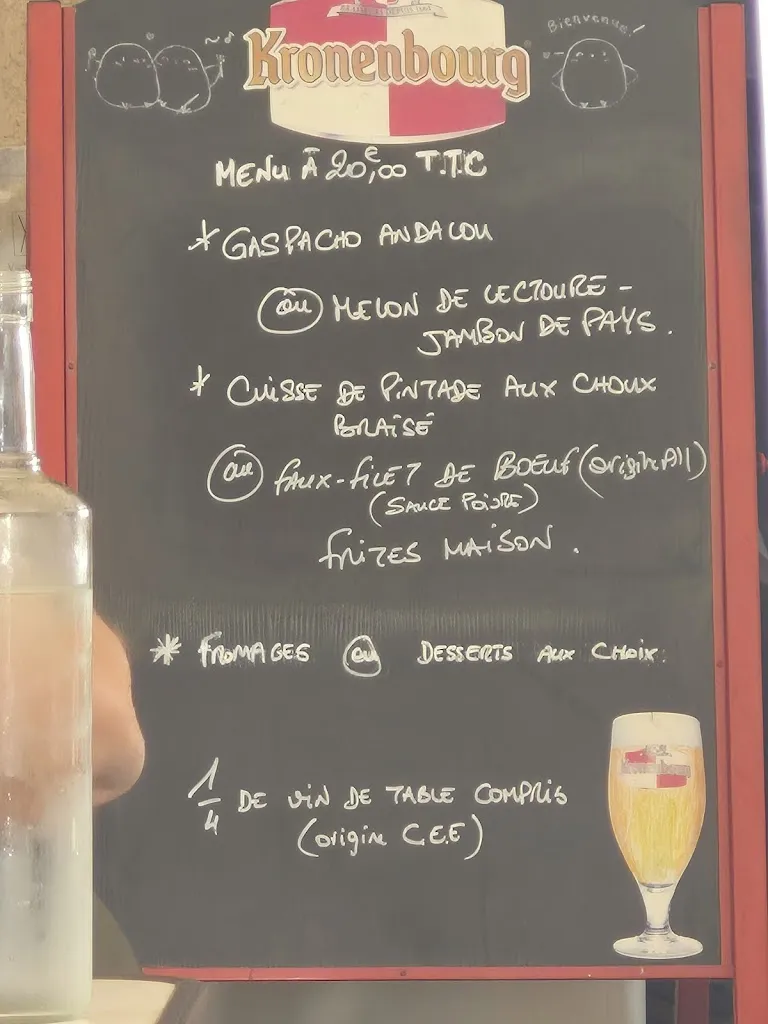 Bienvenue!
Kronenbourg
MENU À 20,00€ T.T.C
* GASPACHO ANDALOU
ou MELON DE LECTOURE -
JAMBON DE PAYS.
* CUISSE DE PINTADE AUX CHOUX
BRAISÉ
ou FAUX-FILET DE BOEUF (origine All)
(SAUCE POIVRE)
FRITES MAISON.
* FROMAGES ou DESSERTS AUX CHOIX.
1/4 DE VIN DE TABLE COMPRIS
(origine C.E.E)